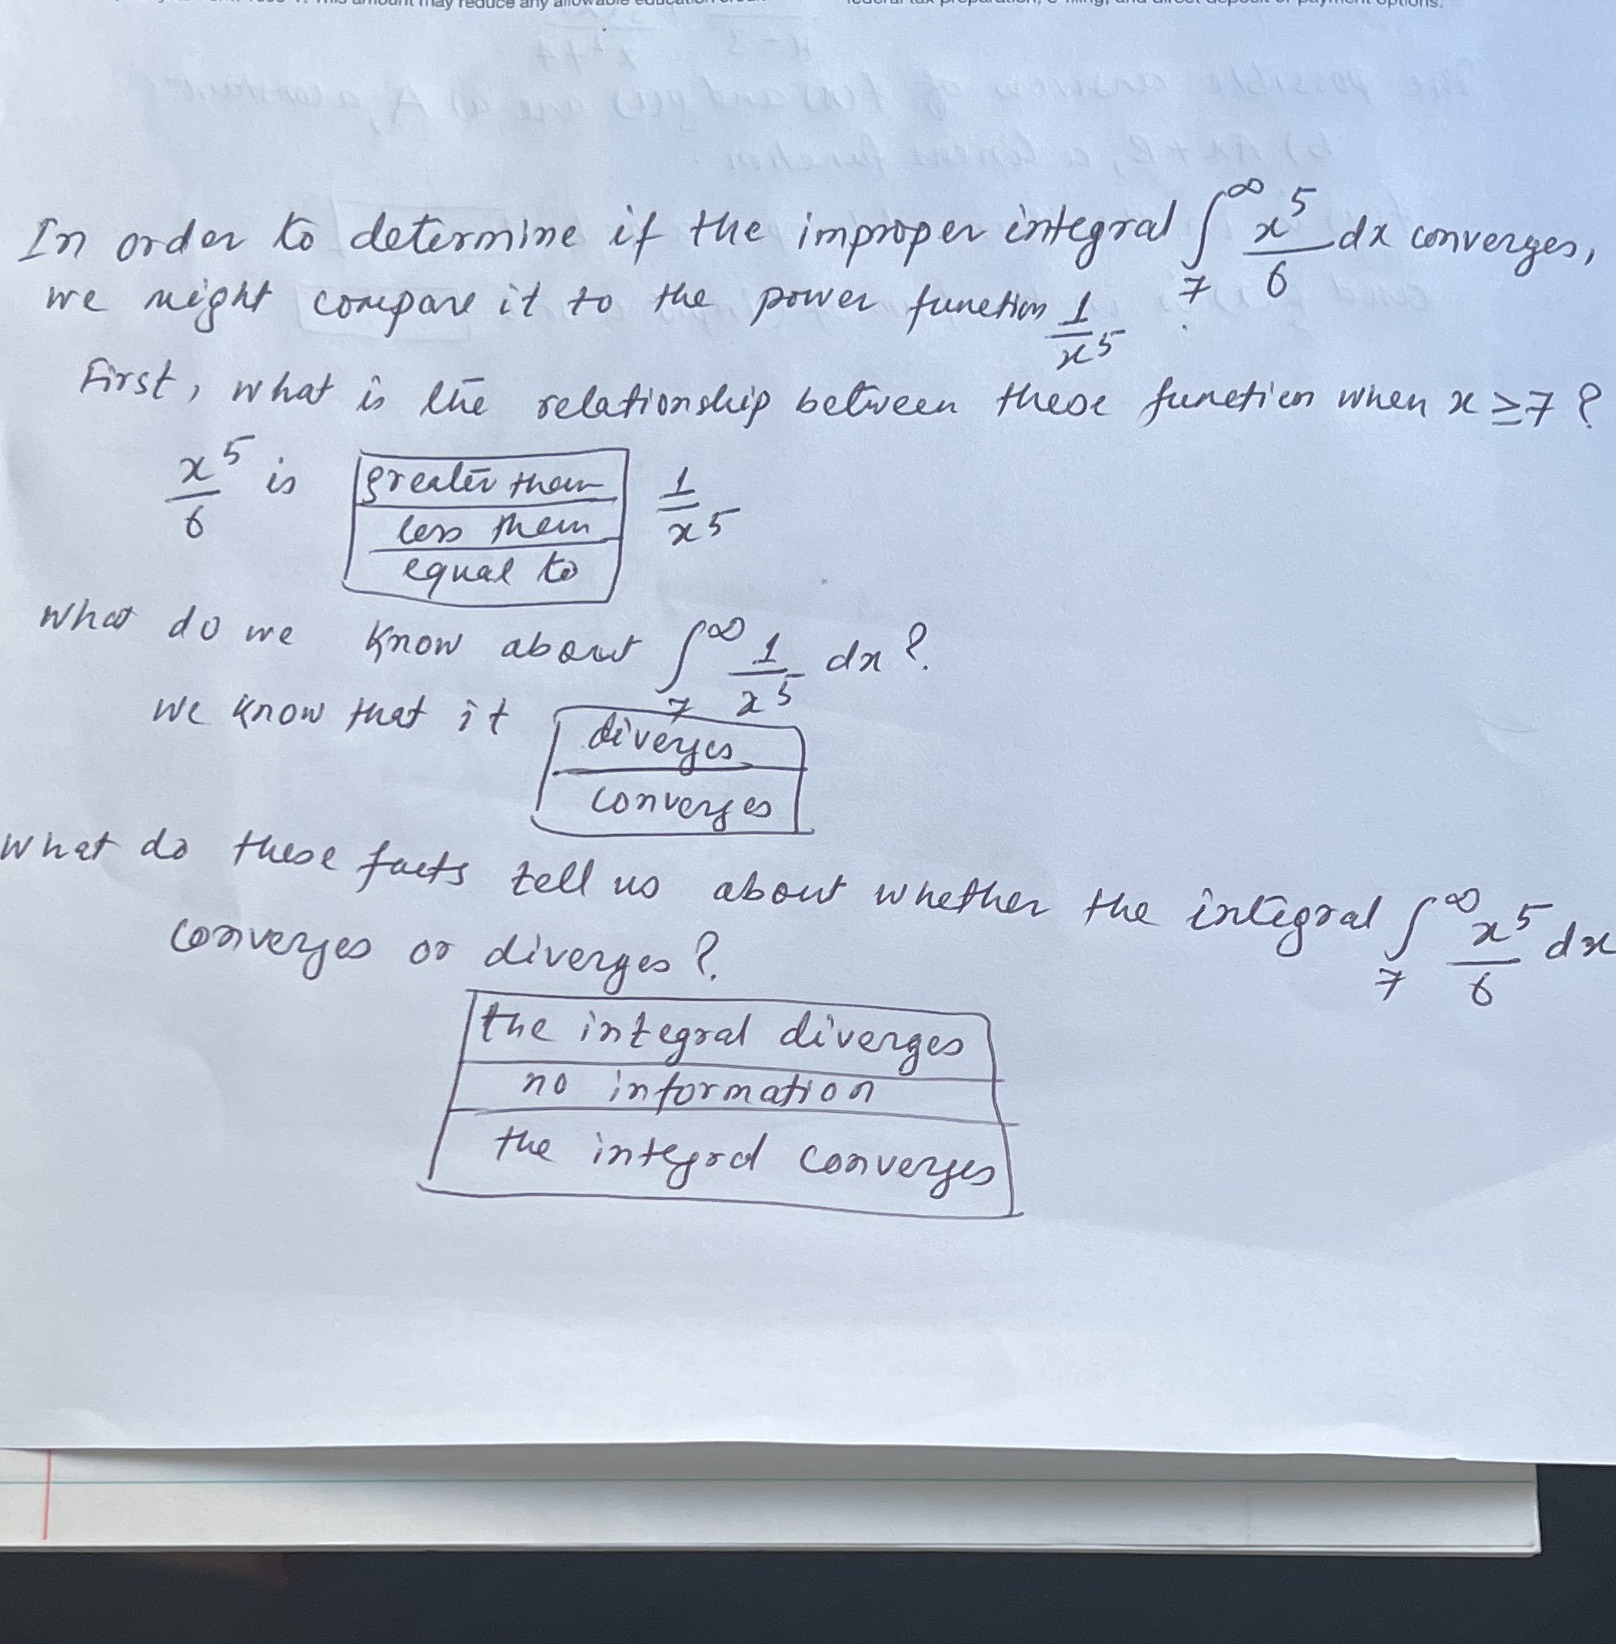 In order to determine if the improper integral ∫₇^∞ x⁵/6 dx converges,
we might compare it to the power function 1/x⁵.
First, what is the relationship between these function when x ≥ 7 ?
x⁵/6 is greater than 1/x⁵
less than
equal to
What do we know about ∫₇^∞ 1/x⁵ dx ?
We know that it diverges
converges
What do these facts tell us about whether the integral ∫₇^∞ x⁵/6 dx
converges or diverges ?
the integral diverges
no information
the integral converges